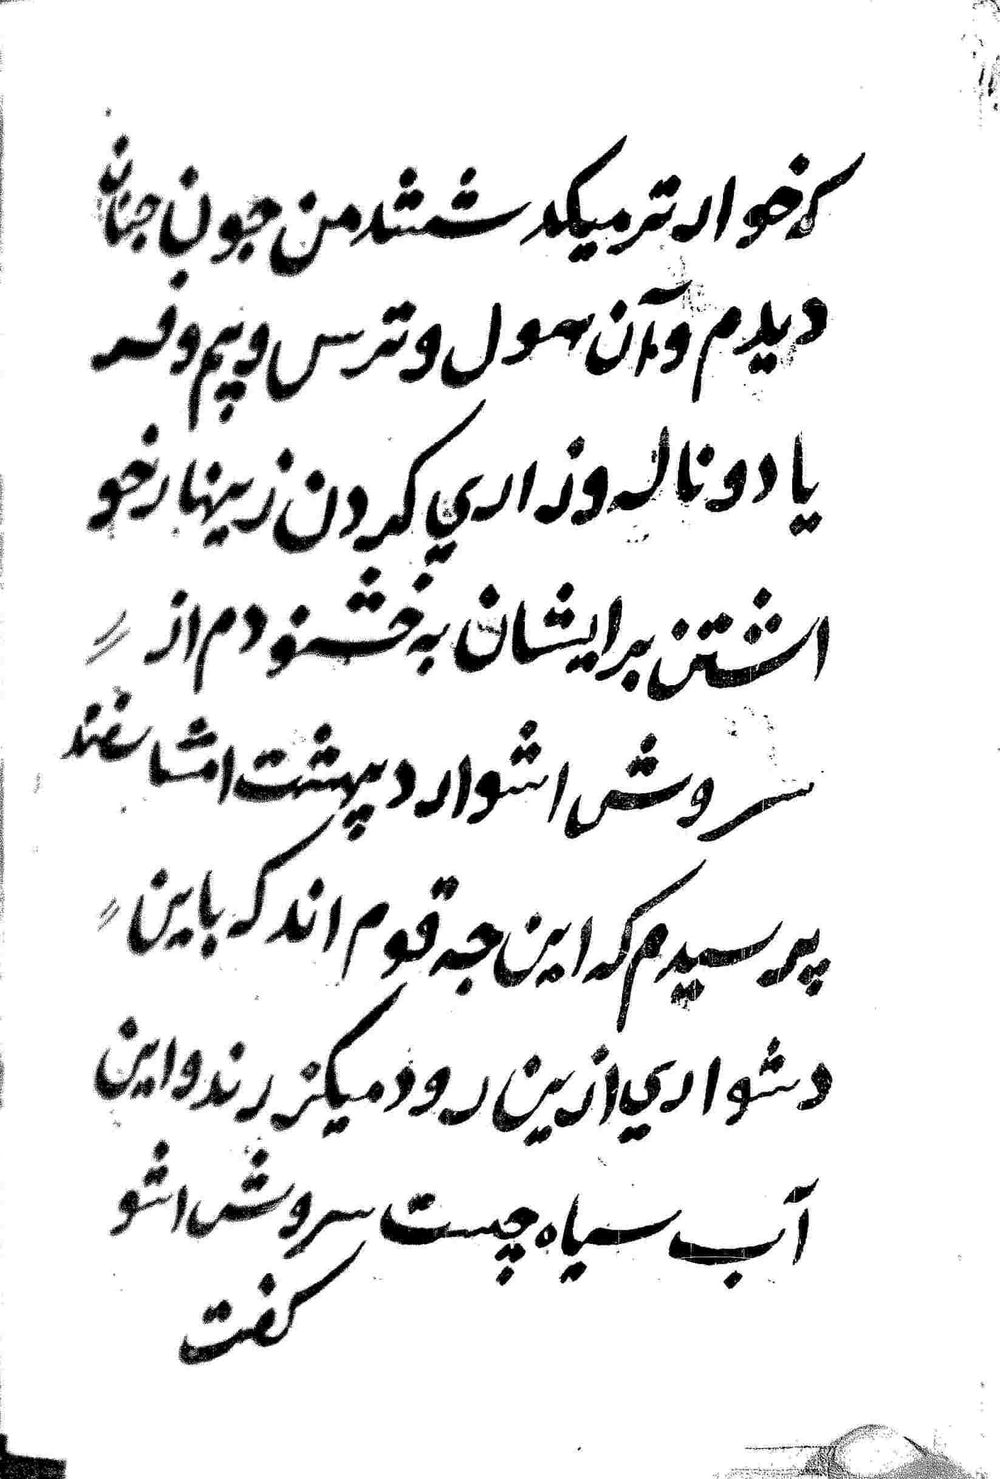 که خوار تر میکد شتند من جون جنان
دیدم و آن هول و ترس و بیم و فر
یاد و ناله و زاری کردن زینهار خو
اشتن بر ایشان به خشنودم از
سروش اشو اردیبهشت امشاسفند
پرسیدم که این جه قوم اند که باین
دشواری ازین رود میکزرند و این
آب سیاه چیست سروش اشو
کفت